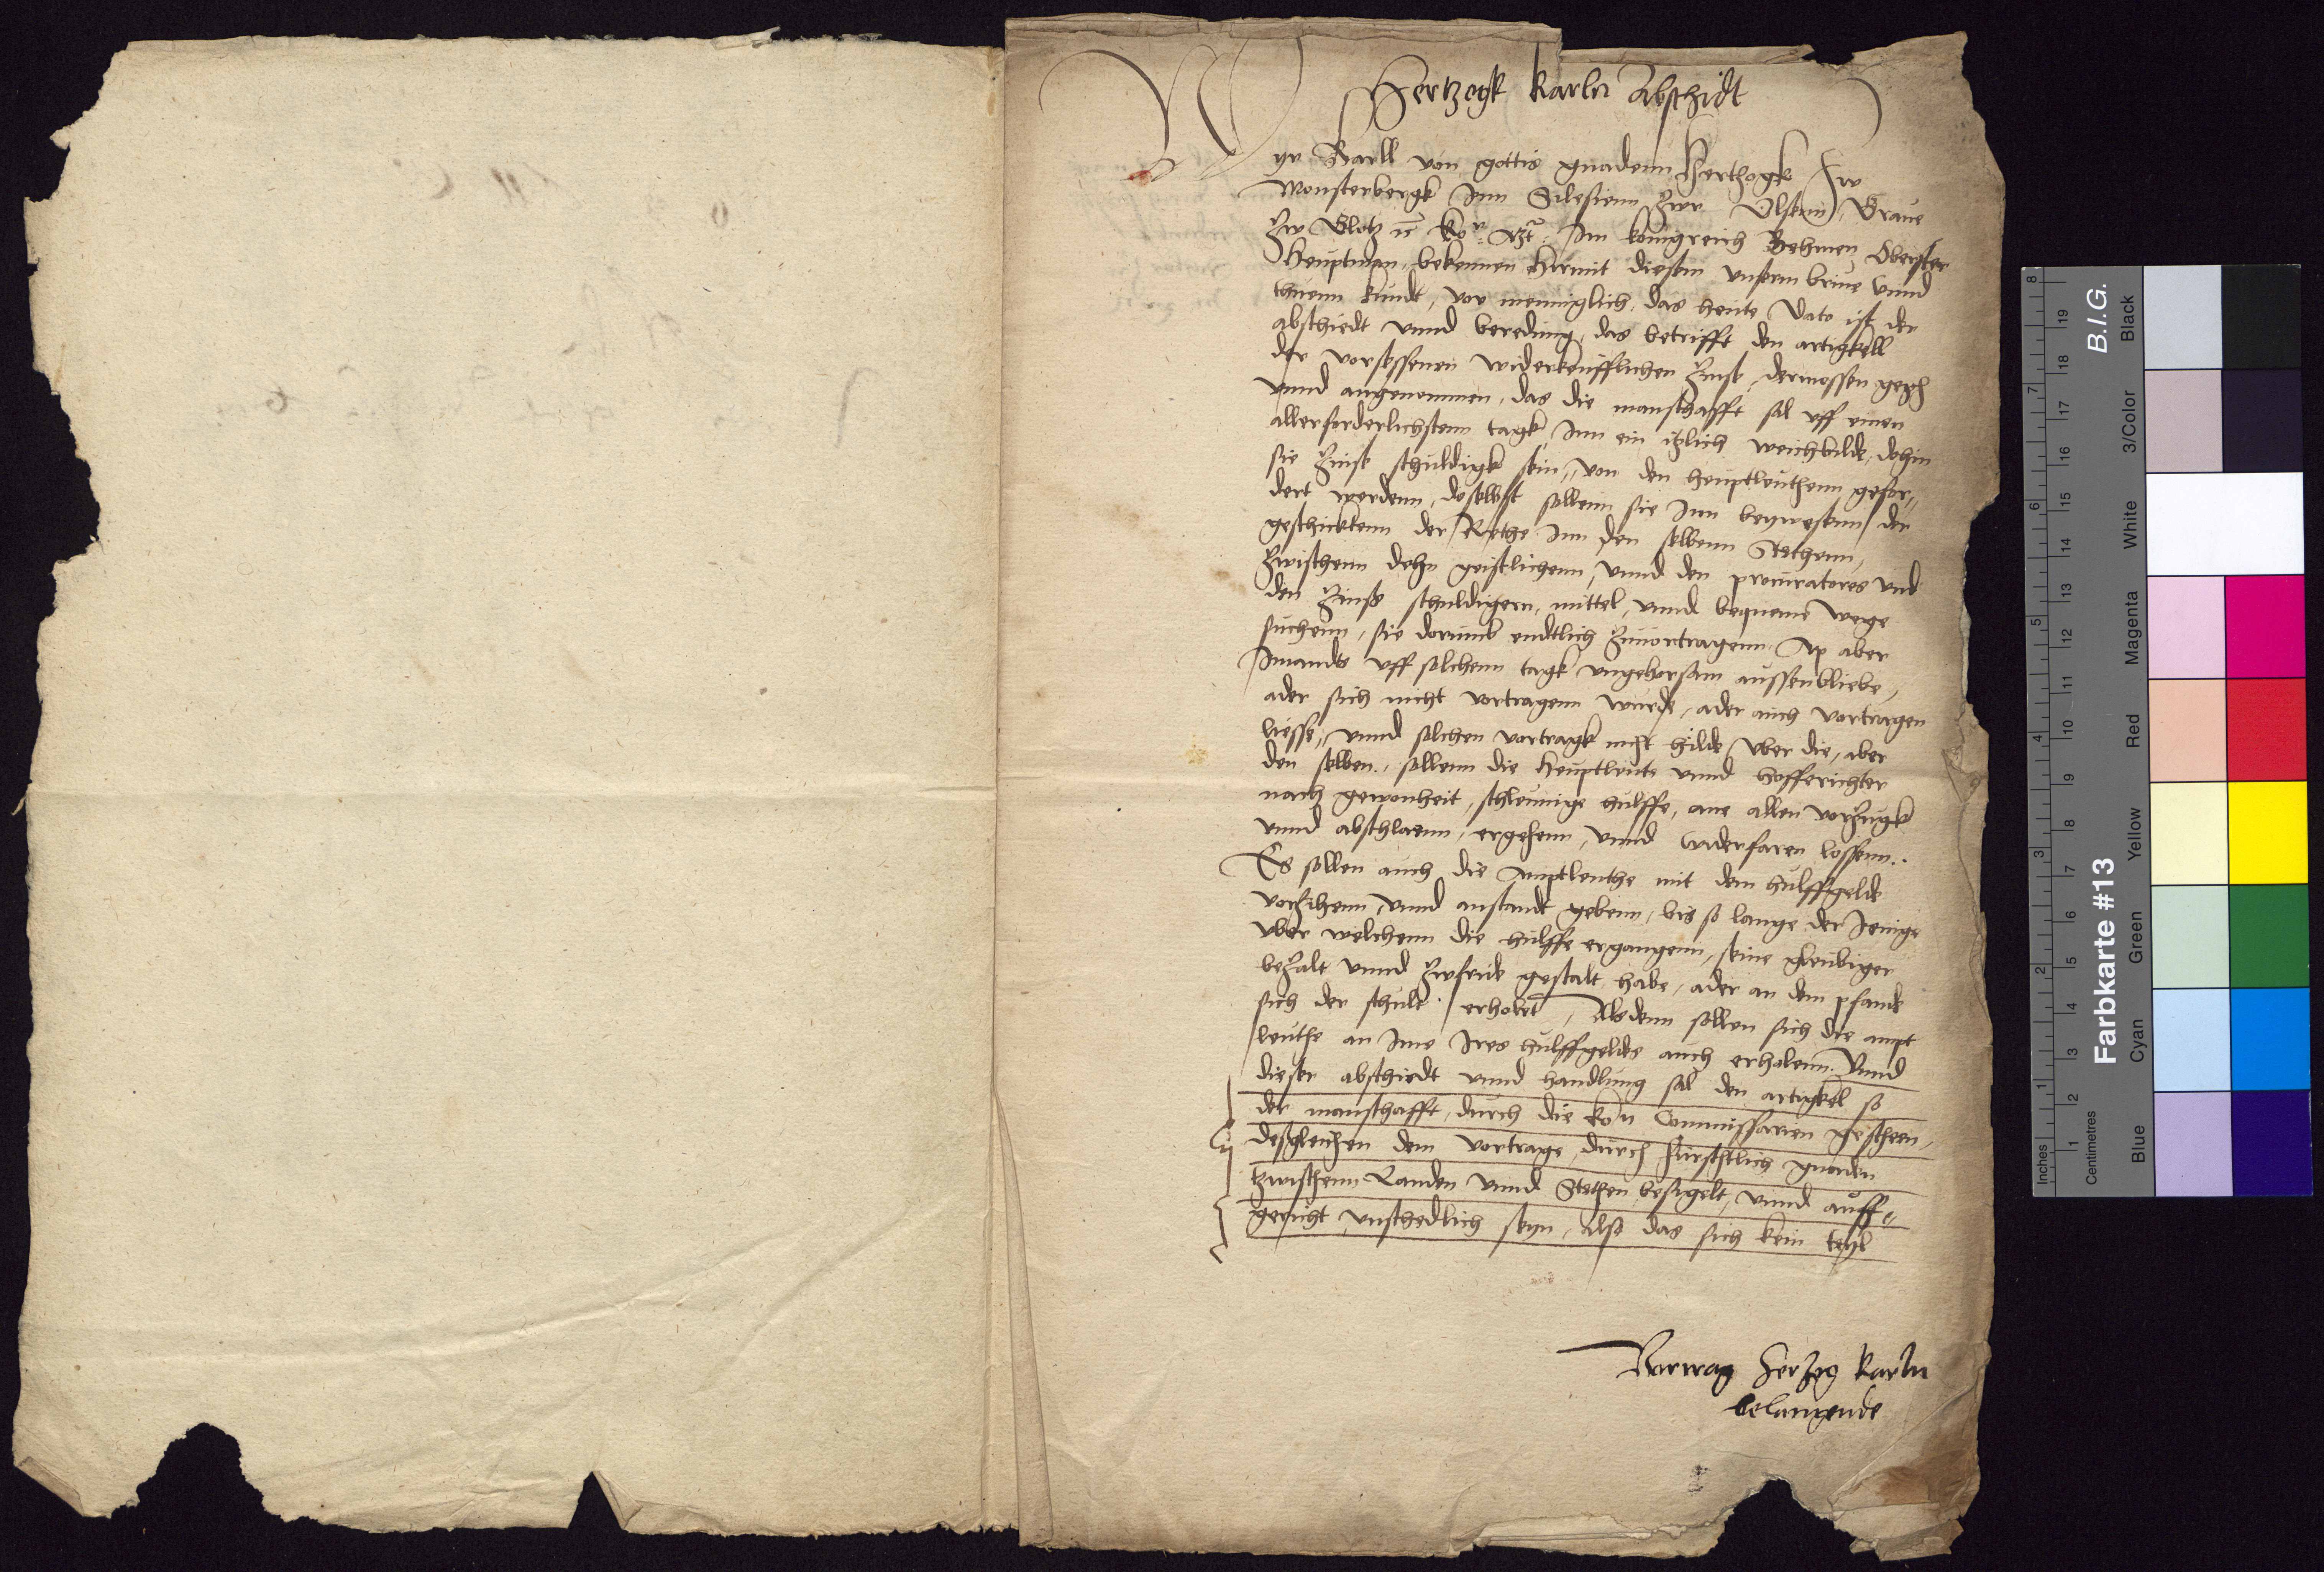 Hertzogk Karln Abschidt
Wyr Karll von gottis gnadenn Herthogk Zw
Monsterbergk Inn Slesienn Zwr Olssenn, Graue
Zw Glotz Im konigreich Behmen Oberster
Heuptman, bekennen hirmit diesem unserm briue Vnnd
thuenn kundt, vor menniglich, das heute Dato ist der
abschiedt vnnd beredung, das betrifft den artigkell
der vorsessenen widerkeufflichen Zinse, dermossen
vnnd angenommen, das die manschafft sal vff einen
allerforderlichstenn tagk, Inn ein itzlich weichbilde, dohin
sie Zinse schuldigk sein, von den heuptleuthenn gefor,,
dert werdenn, doselbst sollenn sie Inn beywesenn der
geschicktenn der Rethe Inn den selbenn Stethenn,
Zwischenn dehn geistlichenn, vnnd den procuratores vnd
den Zinss schuldigern, mittel, vnnd bequeme wege
suchenn, sie dorumb endtlich Zuuortragenn. Ap aber
Imandts vff solchenn tagk vngehorsam aussenbliebe,
ader sich nicht vortragenn wurde, ader auch vortragen
liesse, vnnd solchen vortragk nicht hilde Vber die, aber
den selben, sollenn die Heuptleute vnnd hofferichter
nach gewonheit, schleunige hulffe, ane allen vorzugk
vnnd abschlaenn, ergehenn, vnnd widerfaren lossenn.
Es sollen auch die Amptleuthe mit dem hulffgelde
vorzihenn, vnnd anstandt gebenn, bis so lange der Jenige
vber welchenn die hulffe ergangenn, seine gleubiger
bezalt vnnd Zwfride gestalt habe, ader an dem pfande
sich der schult erholet, Alsdenn sollen sich die ampt
leuthe an Ime Ires hulffgeldes auch erholenn. Vnnd
dieser abschiedt vnnd handlung sal den artigkel so
der manschafft, durch die kon Commissarien gescheen,
desgleichen dem vortrage, durch furschtlich gnaden
tzwischenn Landen vnnd Stethen, besigelt, vnnd auff,,
gericht vnschedlich seyn, Also das sich kein teyl
Vortrag herzog Karln
belangende
Inches
Centimetres
Farbkarte #13
B.I.G.
Blue
Cyan
Green
Yellow
Red
Magenta
White
3/Color
Black
1 2 3 4 5 6 7 8
1 2 3 4 5 6 7 8 9 10 11 12 13 14 15 16 17 18 19